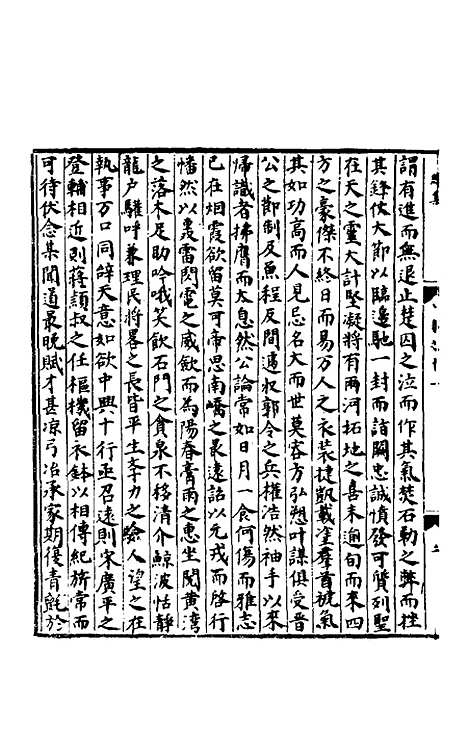 謂有進而無退止楚囚之泣而作其氣焚石勒之幣而挫
其鋒仗大節以臨邊馳一封而詣闕忠誠憤發可貫列聖
在天之靈大計堅凝將有兩河拓地之喜未逾旬而來四
方之豪傑不終日而易萬人之衣裝捷凱載塗羣酋褫氣
其如功高而人見忌名大而世莫容方弘愬叶謀俱受晉
公之節制及魚程反間遽收郭令之兵權浩然袖手以來
歸識者拊膺而太息然公論常如日月一食何傷而雅志
已在烟霞欲留莫可帝思南嶠之最遠詔以元戎而啓行
幡然以轟雷閃電之威歛而為陽春膏雨之惠坐閱黃灣
之落木足助吟哦笑飲石門之貪泉不移清介鯨波恬靜
龍户驩呼兼理民將畧之長皆平生李力之驗人望之在
執事万口同辭天意如欲中興十行亟召遠則宋廣平之
登輔相近則蔣頴叔之任樞機留衣鉢以相傳紀旂常而
可待伏念某聞道最晚賦才甚凉弓冶承家期復青氈於